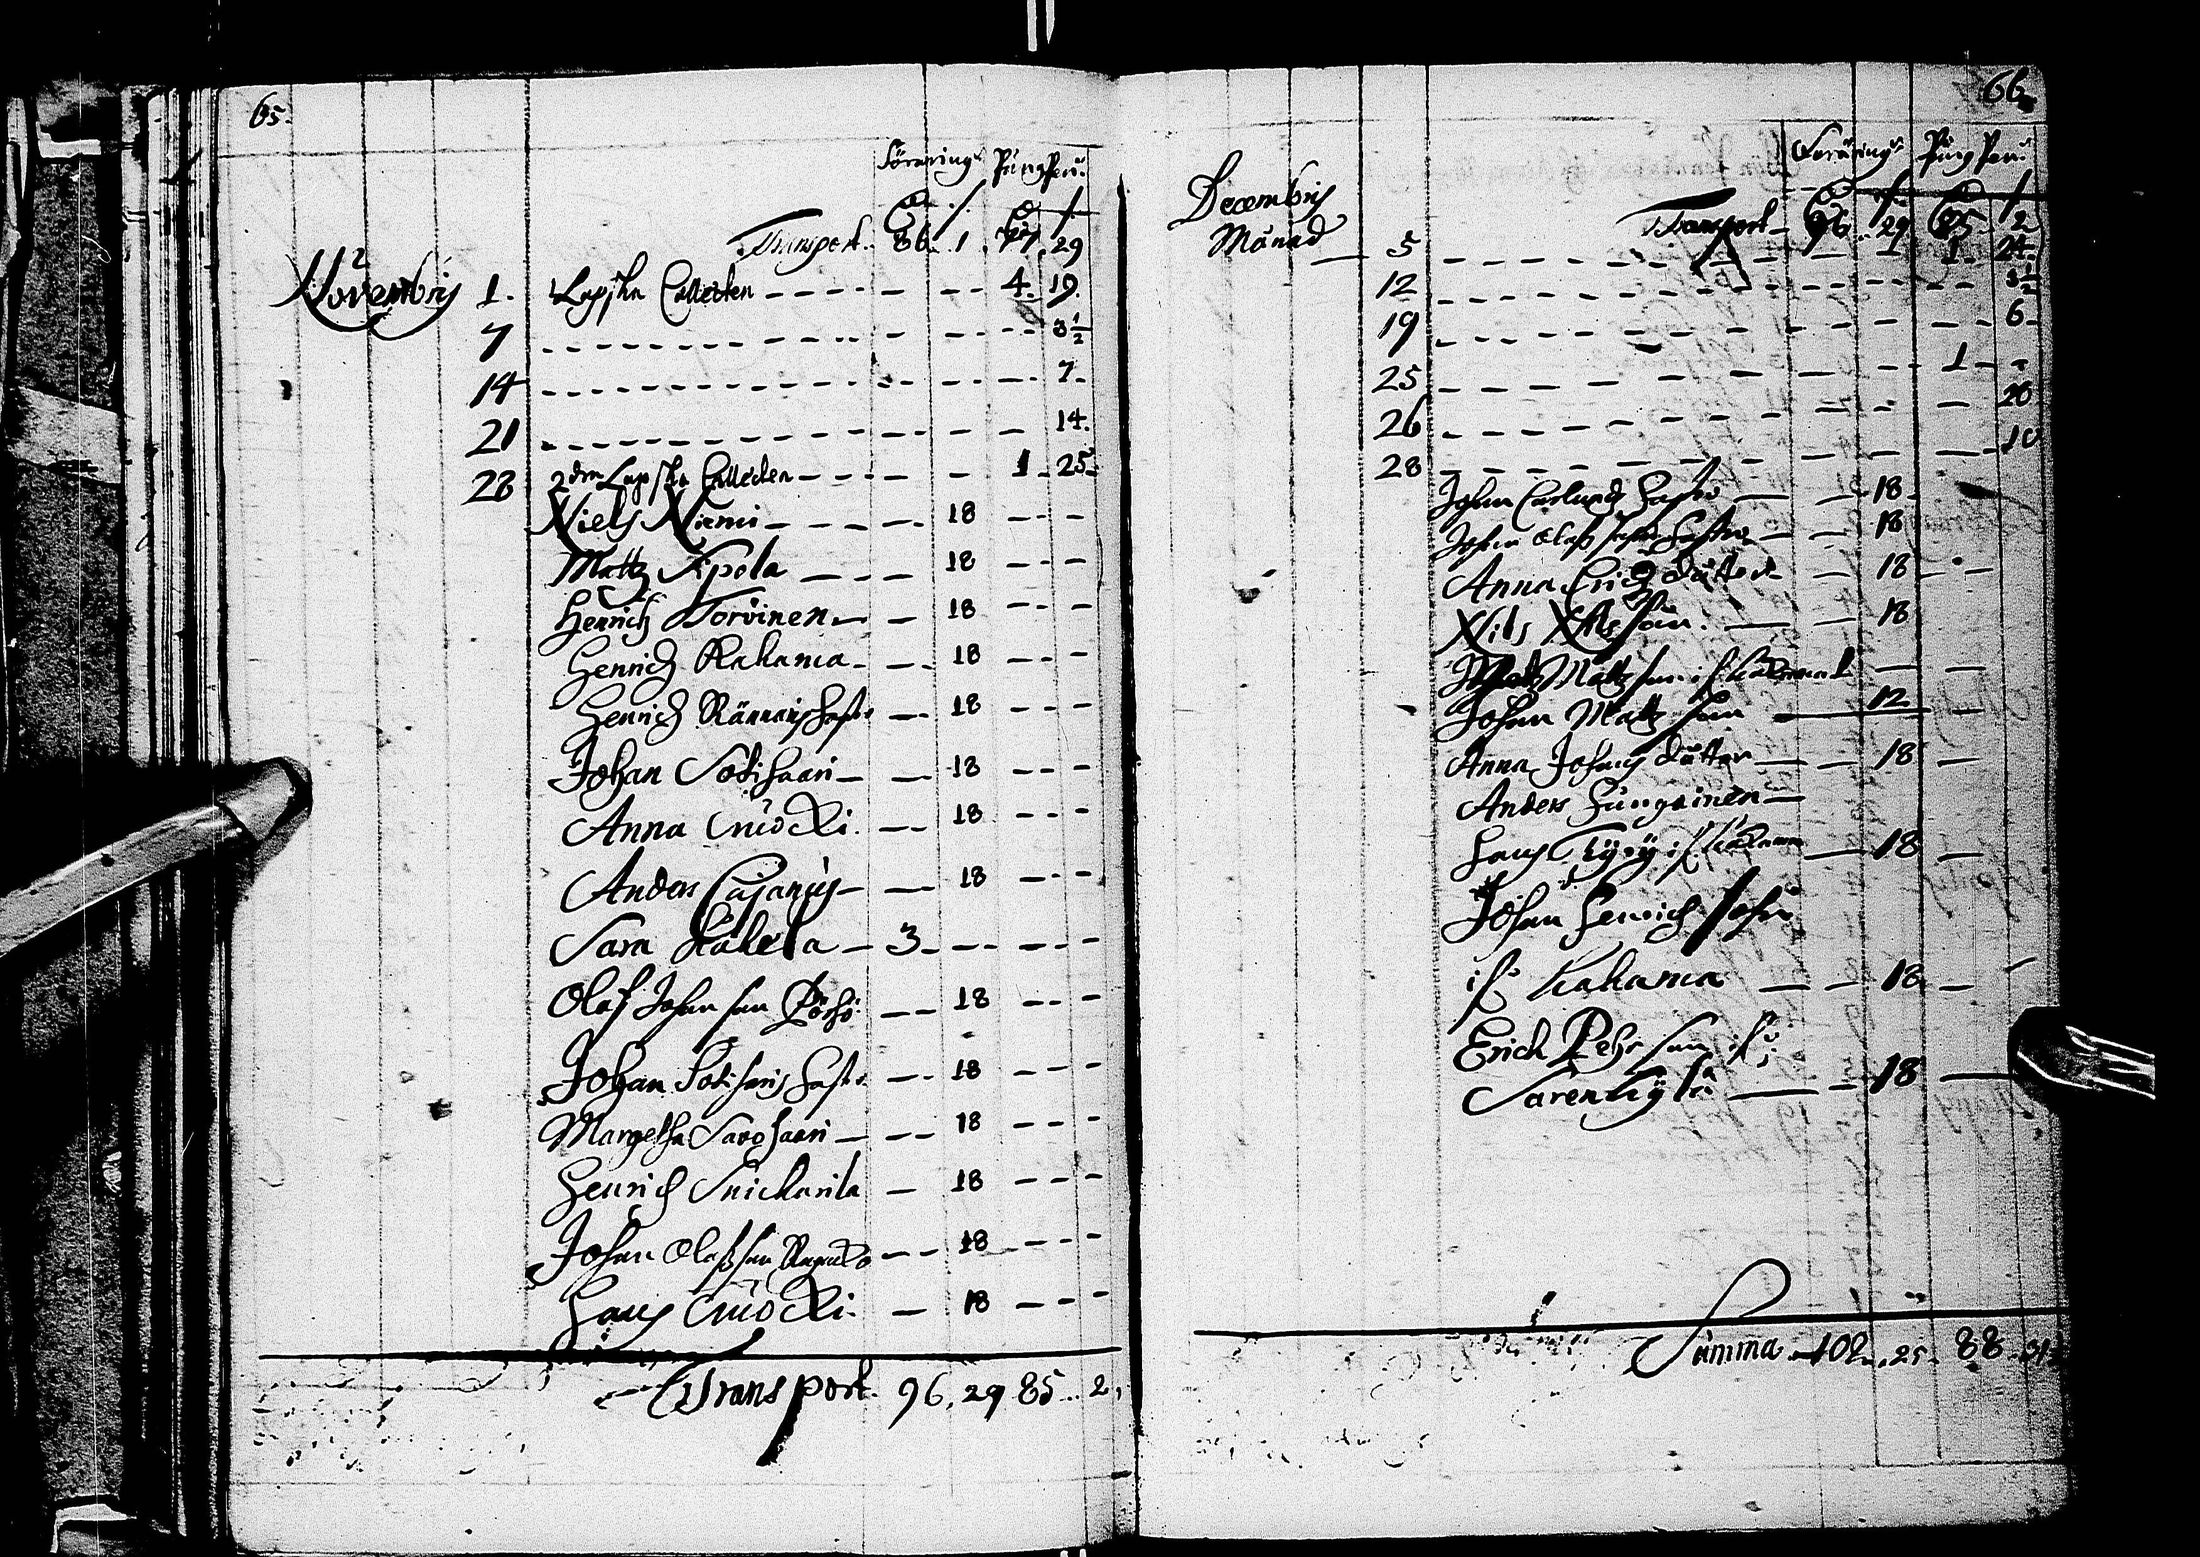 65.
Föräring Pung Pen:
Transport. 86. 1. 77. 29
Novembris 1. Lapska Collecten 4. 19.
7 3 1/2
14 7.
21 14.
28 2dra Lapska Collecten 1. 25.
Niels Niemi 18
Mattz Sipola 18
Henrich Torvinen 18
Henrich Rahania 18
Henrich Hustro 18
Johan Sotisaari 18
Anna Cnuocki. 18
Anders Cajanus 18
Sara Kakela 3
Olof Johansson 18
Johan Sotisaris Hustro 18
Margetha Savosaari 18
Henrich Snickarila 18
Johan Olofsson 18
Hans Cnuocki. 18
Transport. 96. 29 85. 2.
66
Föräring Pung Pen:
Decembris
Månad
Transport 96. 29 85. 2
5 1. 24
12 3 1/2
19 6
25 1
26 20
28 10
Johan Carlunds Hustro 18
Johan Olofssons Hustro 18
Anna Erichdåtter 18
Nils Nilsson 18
Mattz Mattzson
Johan Mattzson 12
Anna Johansdåtter 18
Anders Hungainen
Hans 18
Johan Henrichsohn
Kahania 18
Erich Pehrson
Sarenkylä 18
Summa 102. 25. 88. 31